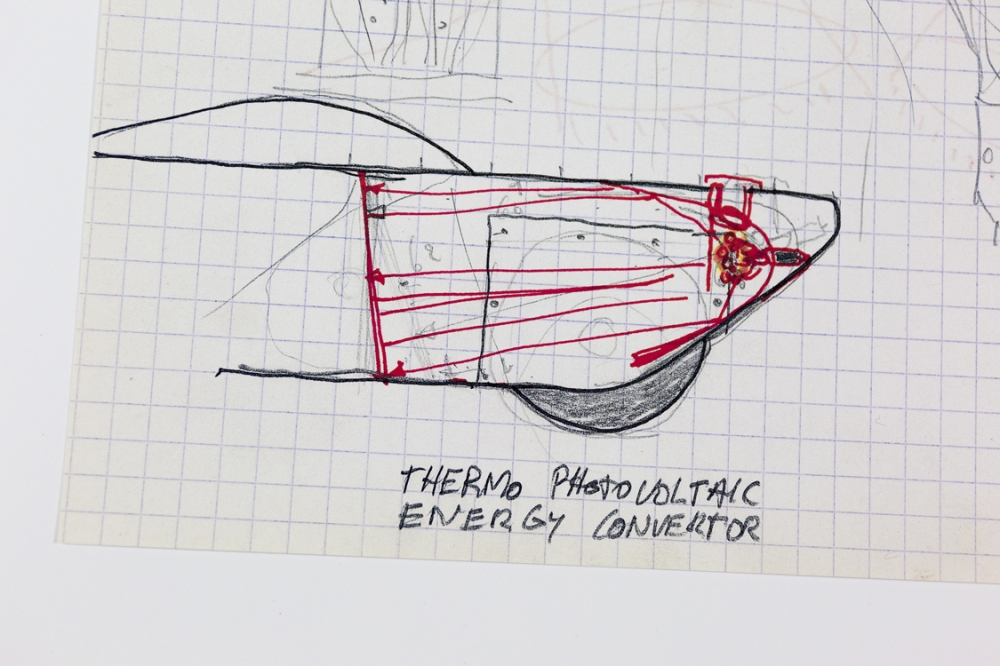 THERMO PHOTOVOLTAIC
ENERGY CONVERTOR